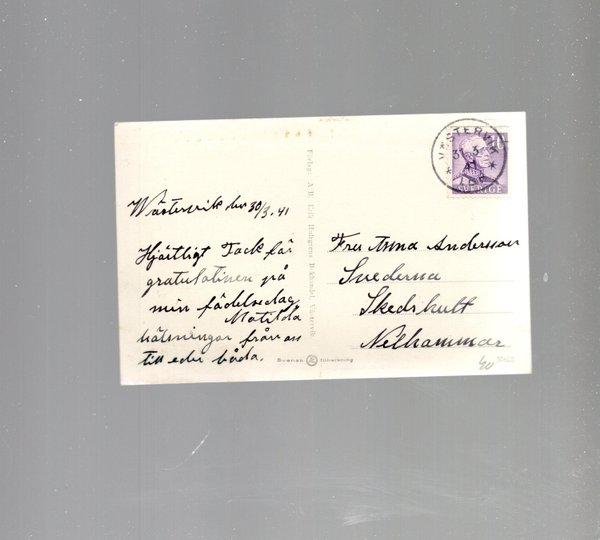 Wästervik den 30/3. 41
Hjärtligt Tack för
gratulationen på
min födelsedag
Matilda
hälsningar från oss
till eder båda.
Förlag: A.B. Erik Hultgrens Bokhandel, Västervik
Svensk tillverkning
VÄSTERVIK
31.3.
41
SVERIGE
Fru Anna Andersson
Snederna
Skedshult
Nelhammar